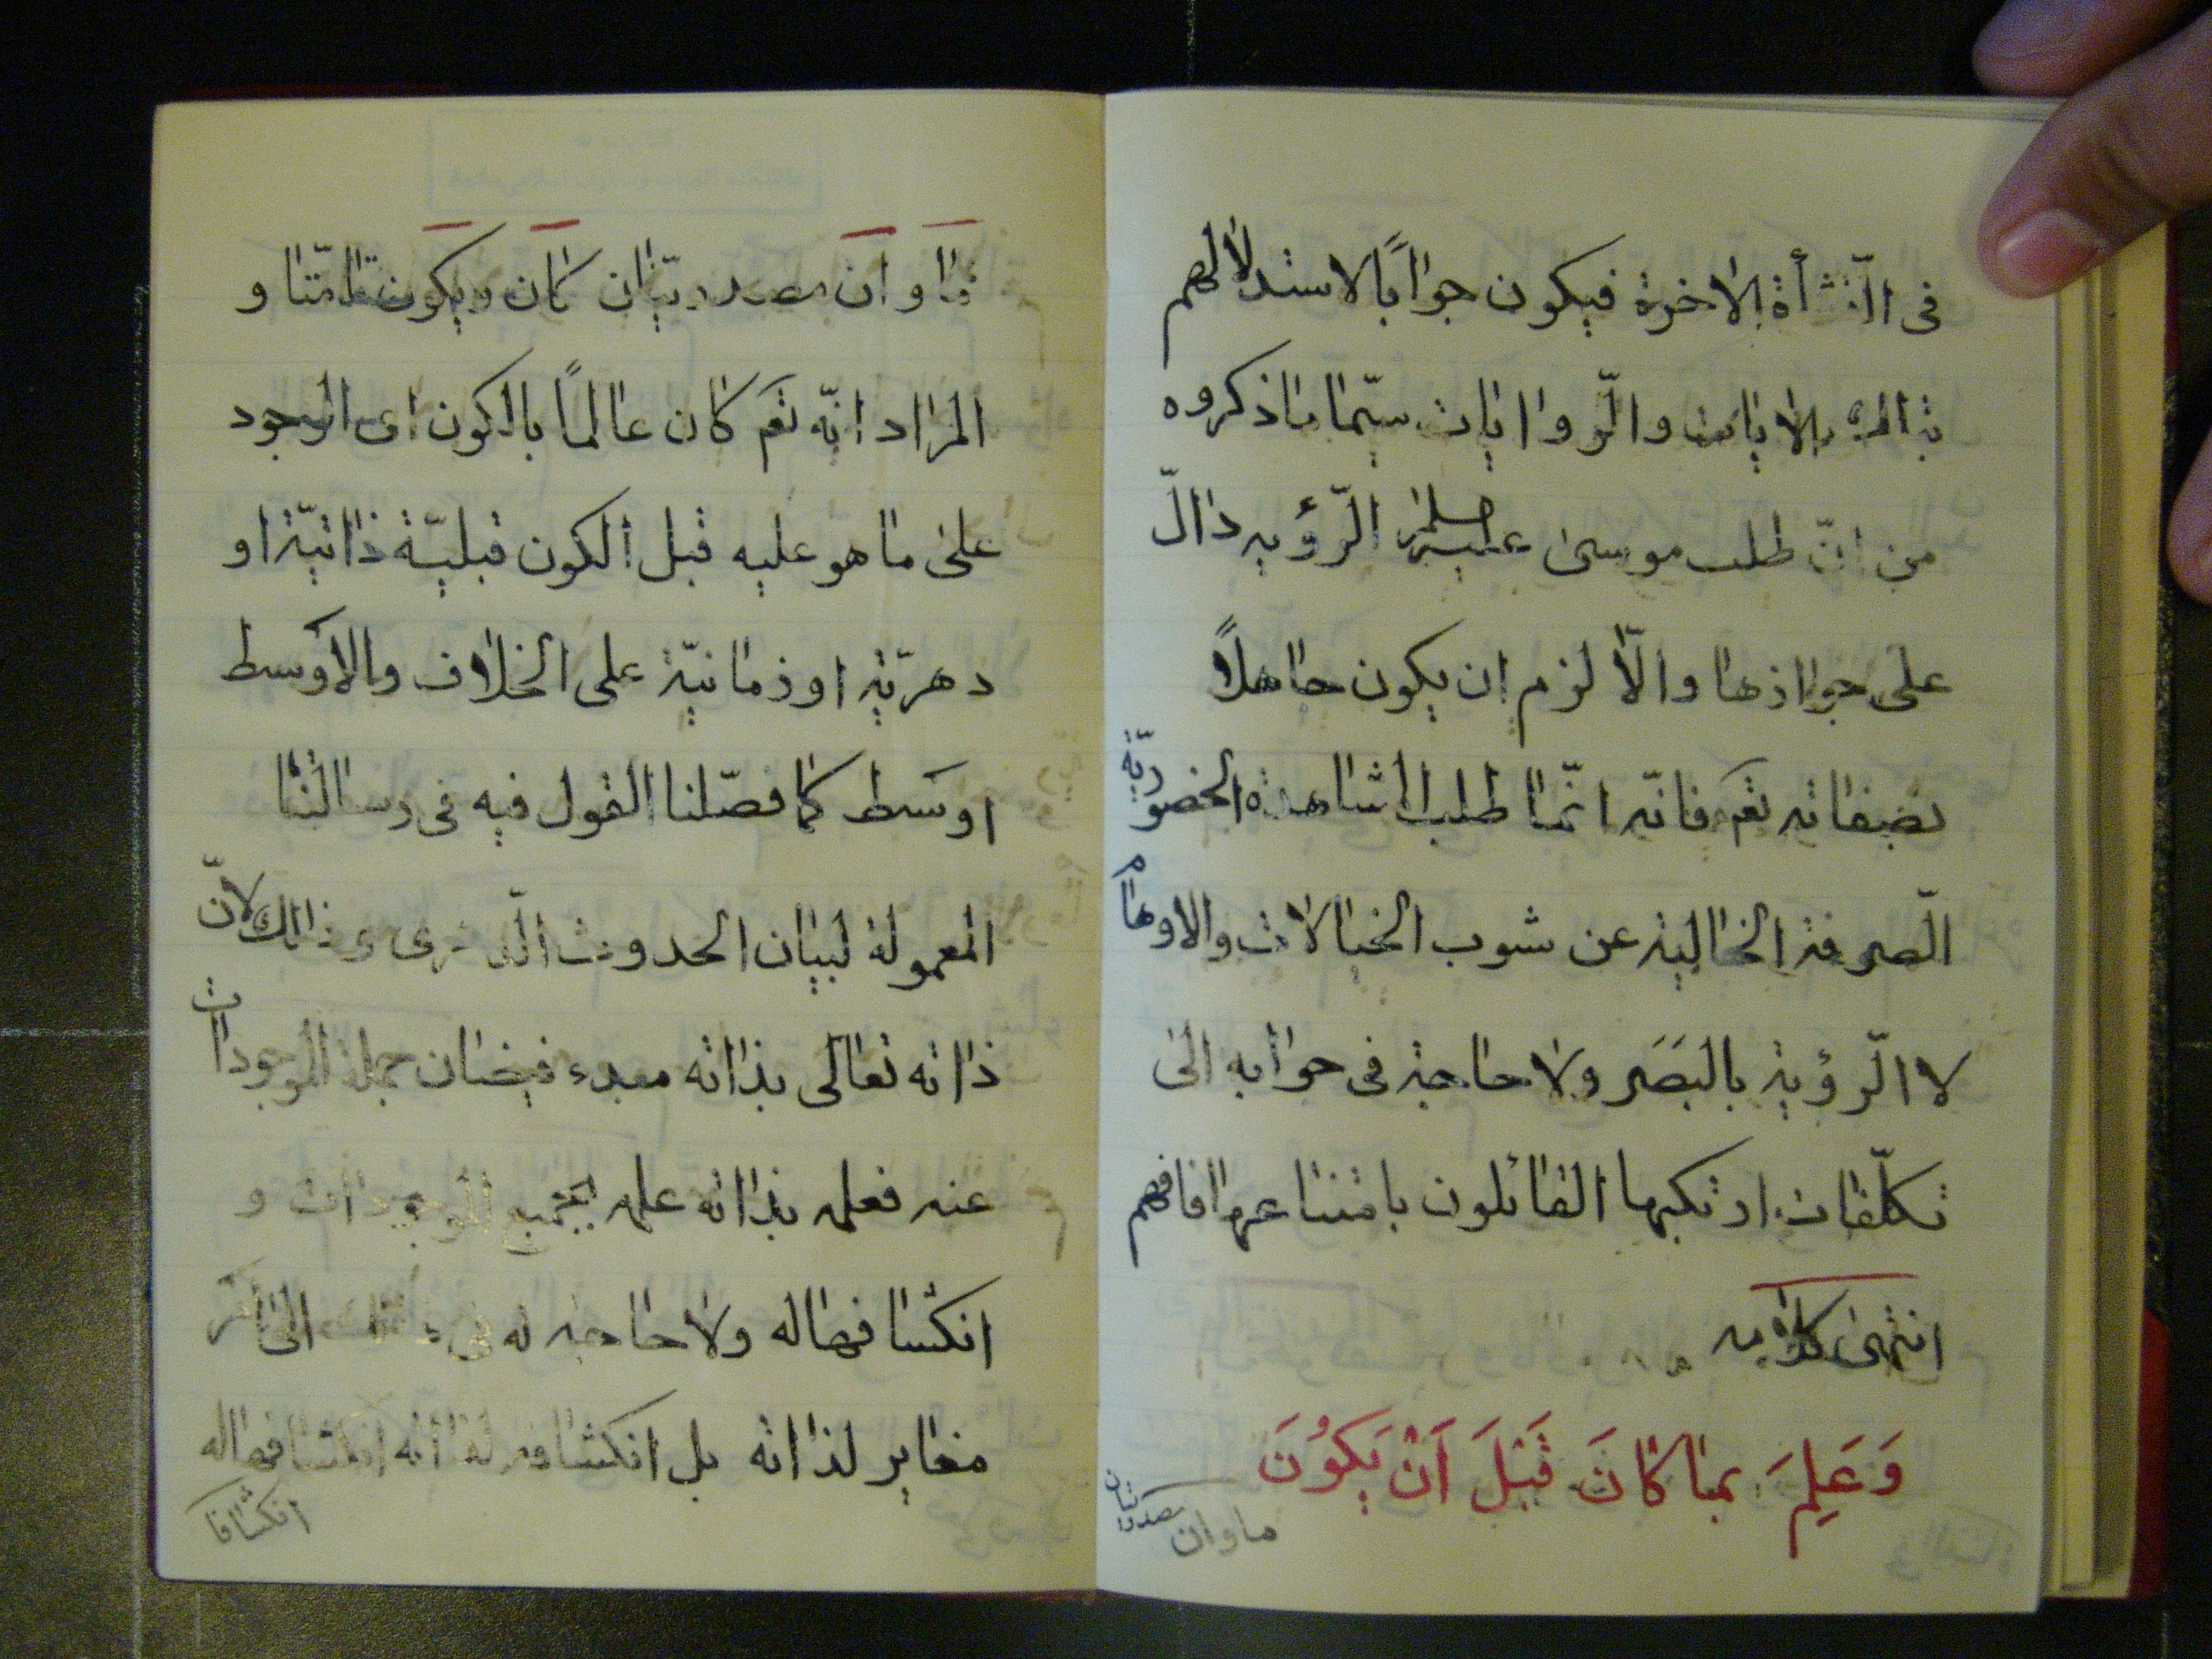 فى النّشأة الاخرة فيكون جوابًا لاستدلالهم
بالايات والرّوايات سيّما ما ذكروه
من انّ طلب موسى الرّؤية دالّ
على جوازها والّا لزم ان يكون جاهلًا
بصفاته تعم فانّه انّما طلب المشاهدة الحضوريّة
الصّرفة الخالية عن شوب الخيالات والاوهام
لا الرّؤية بالبَصَر ولا حاجة فى جوابه الى
تكلّفات ارتكبها القائلون بامتناعها فافهم
انتهى كلامه
وَعَلِمَ بِمَا كَانَ قَبْلَ اَنْ يَكُوُنَ
ما وان مصدريتان
ما و ان مصدريّتان كان ويكون تامّتا و
المراد انّه تعم كان عالمًا بالكون اى الوجود
على ما هو عليه قبل الكون قبليّة ذاتيّة او
دهريّة او زمانيّة على الخلاف والاوسط
اوسَط كما فصّلنا القول فيه فى رسالتنا
المعمولة لبيان الحدوث الدّهرى وذالك لانّ
ذاته تعالى بذاته مبدء فيضان جملة الموجودات
عنه فعلمه بذاته علمه بجميع الموجودات و
انكشافها له ولا حاجة له فى ذالك الى امر
مغاير لذاته بل انكشافه لذاته انكشافها له
انكشافا